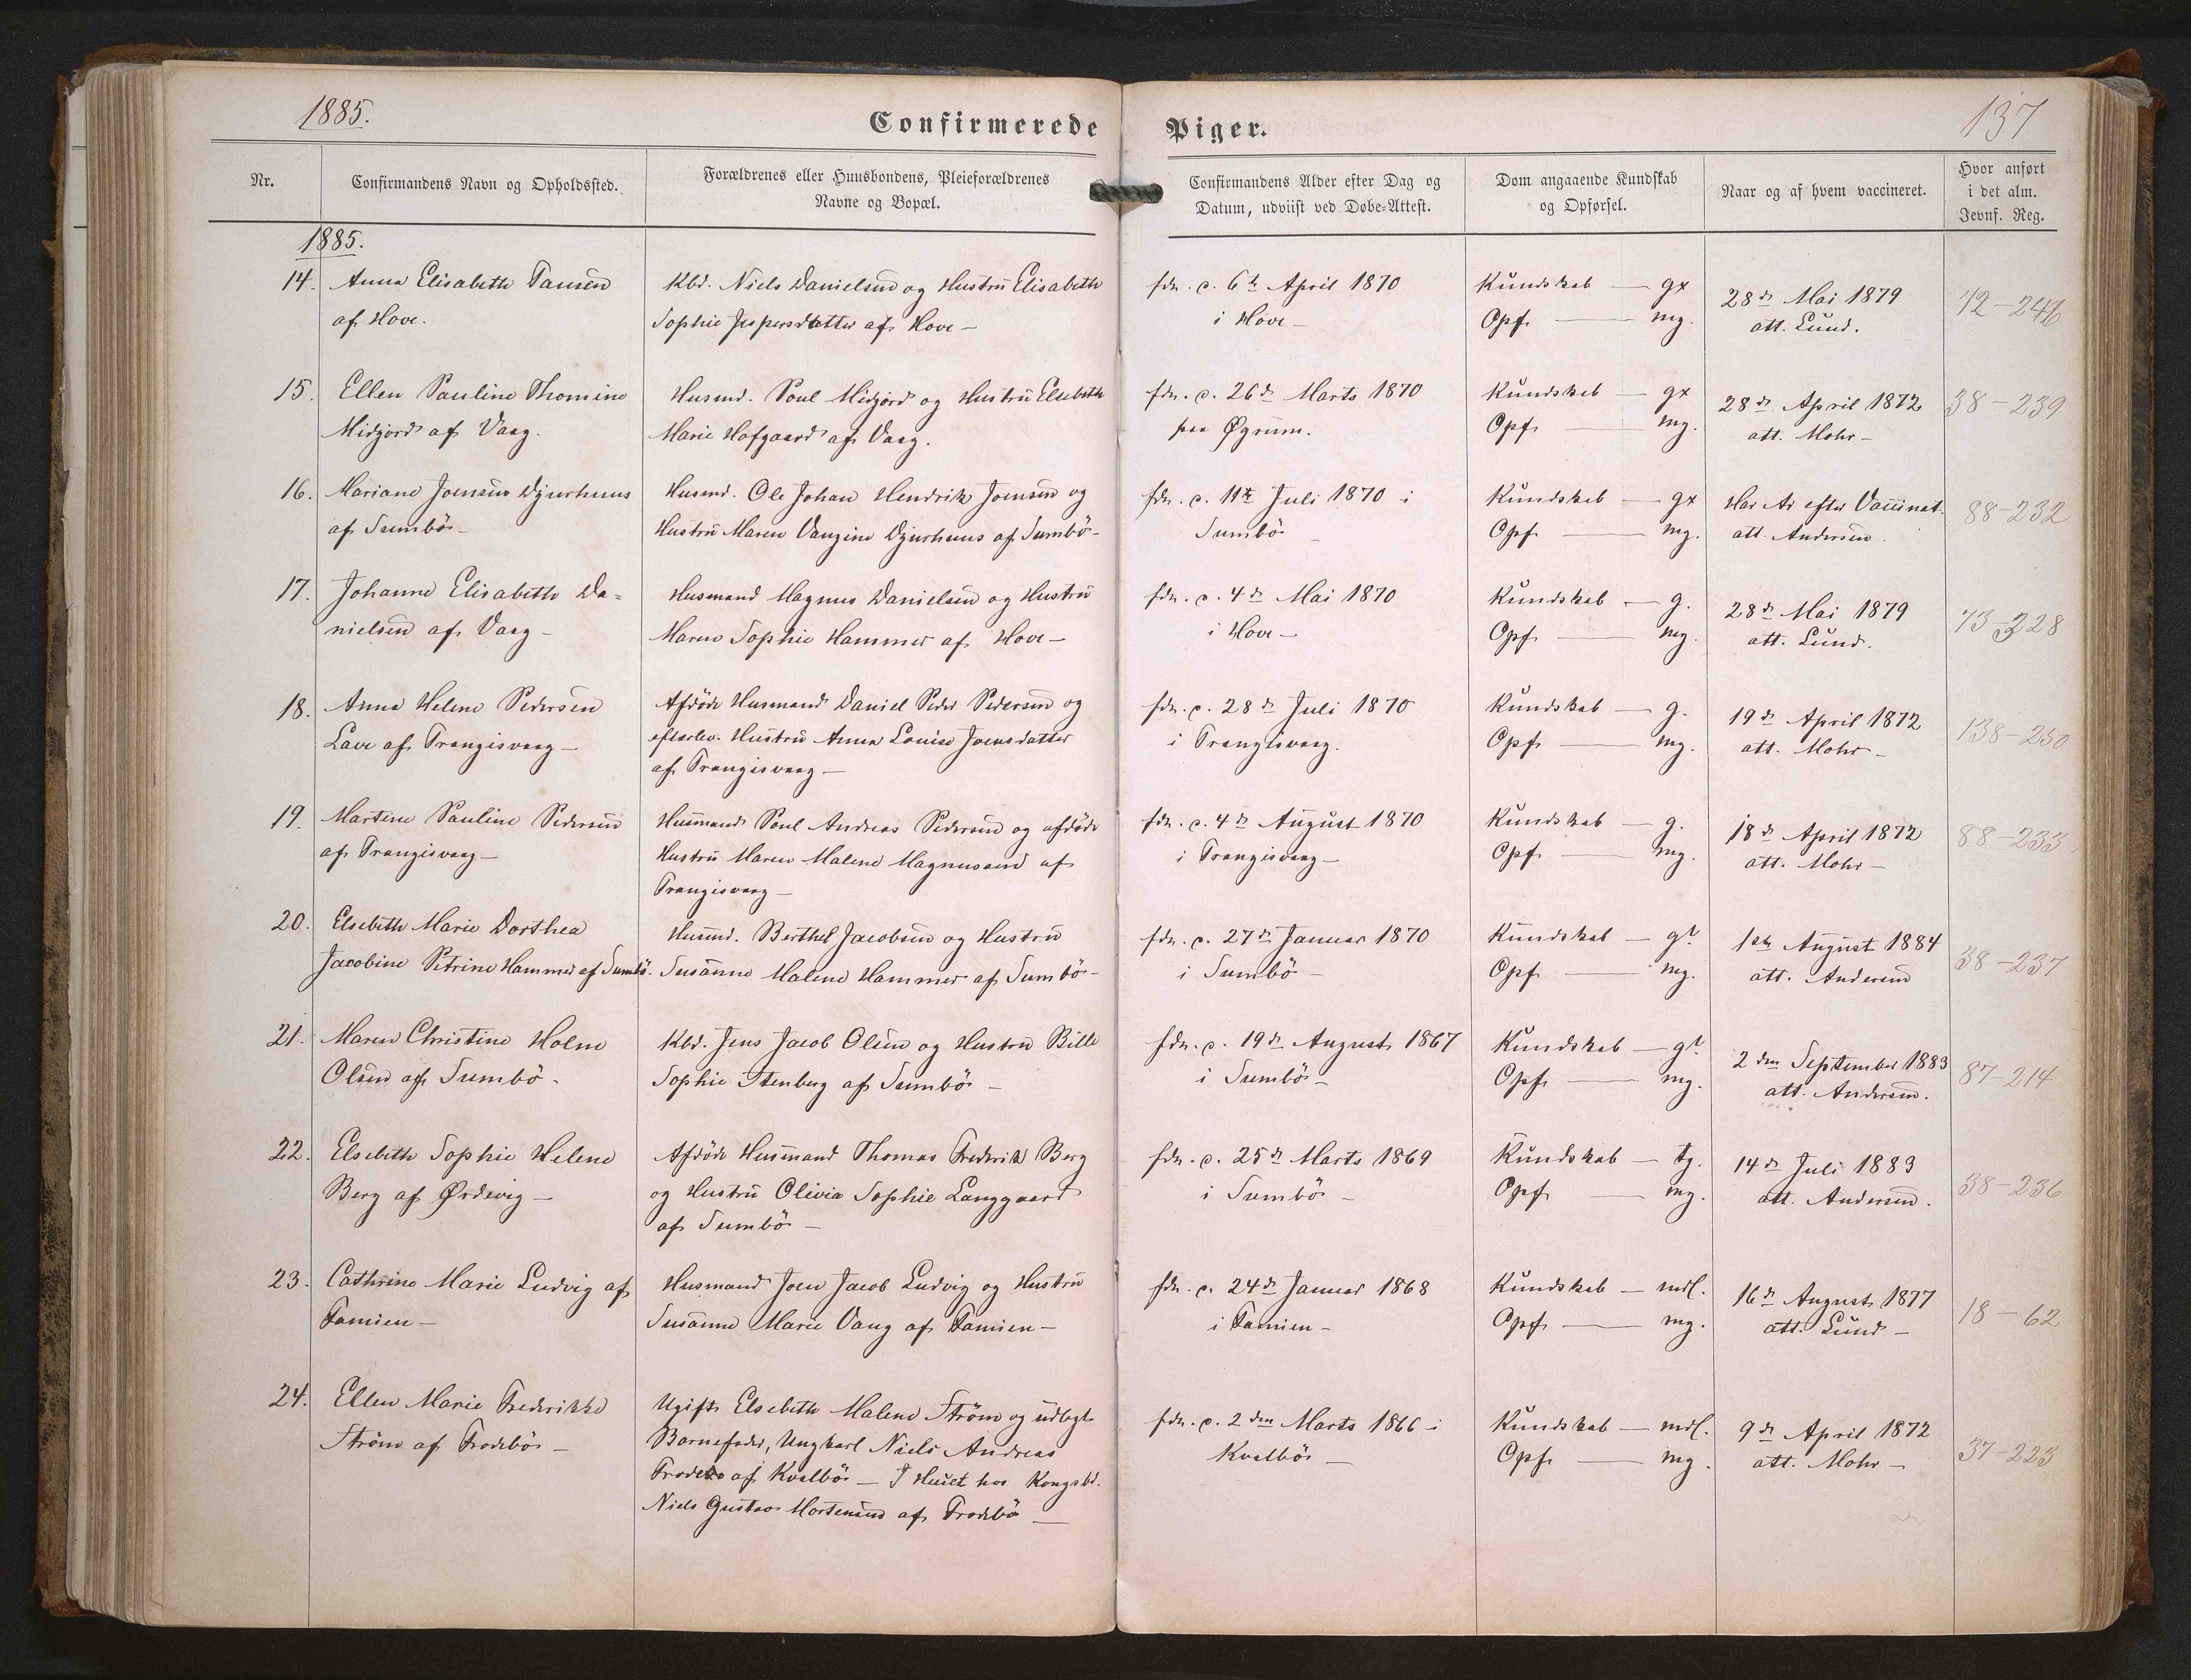 1885.
Confirmerede Piger.
137
Nr.
Confirmandens Navn og Opholdssted.
Forældrenes eller Huusbondens, Pleieforældrenes
Navne og Bopæl.
Confirmandens Alder efter Dag og
Datum, udviist ved Døbe-Attest.
Dom angaaende Kundskab
og Opførsel.
Naar og af hvem vaccineret.
Hvor anført
i det alm.
Jevnf. Reg.
1885.
14. Anna Elisabeth Tausen
af Hove.
Kbd. Niels Danielsen og Hustru Elisabeth
Sophie Jespersdatter af Hove —
fdr. d. 6te April 1870
i Hove —
Kundskab — gx
Opf. — mg.
28de Mai 1879
att. Lund.
72-246
15. Ellen Pauline Thomine
Midjord af Vaag.
Husmd. Poul Midjord og Hustru Elsebeth
Marie Hofgaard af Vaag.
fdr. d. 26de Marts 1870
paa Øgrum.
Kundskab — gx
Opf. — mg.
28de April 1872
att. Mohr —
38-239
16. Mariane Joensen Djurhuus
af Sumbö —
Husmd. Ole Johan Hendrik Joensen og
Hustru Maren Vangine Djurhuus af Sumbö —
fdr. d. 11te Juli 1870 i
Sumbö —
Kundskab — gx
Opf. — mg.
Har Ar efter Vaccinat.
att. Andersen.
88-232
17. Johanne Elisabeth Da=
nielsen af Vaag —
Husmand Magnus Danielsen og Hustru
Maren Sophie Hammer af Hove —
fdr. d. 4de Mai 1870
i Hove —
Kundskab — g.
Opf. — mg.
28de Mai 1879
att. Lund.
73-228
18. Anna Helene Pedersen
Lave af Trangisvaag —
Afdöde Husmand Daniel Peder Pedersen og
efterlev. Hustru Anna Louise Joensdatter
af Trangisvaag —
fdr. d. 28de Juli 1870
i Trangisvaag.
Kundskab — g.
Opf. — mg.
19de April 1872
att. Mohr —
138-250
19. Martine Pauline Pedersen
af Trangisvaag —
Husmand Poul Andreas Pedersen og afdöde
Hustru Maren Malene Magnussen af
Trangisvaag —
fdr. d. 4de August 1870
i Trangisvaag —
Kundskab — g.
Opf. — mg.
18de April 1872
att. Mohr —
88-233
20. Elsebeth Marie Dorthea
Jacobine Petrine Hammer af Sumbö.
Husmd. Berthel Jacobsen og Hustru
Susanne Malene Hammer af Sumbö —
fdr. d. 27de Januar 1870
i Sumbö —
Kundskab — g?
Opf. — mg.
1ste August 1884
att. Andersen
38-237
21. Maren Christine Holme
Olsen af Sumbö.
Kbd. Jens Jacob Olsen og Hustru Bille
Sophie Stenberg af Sumbö —
fdr. d. 19de August 1867
i Sumbö —
Kundskab — g?
Opf. — mg.
2den September 1883
att. Andersen.
87-214
22. Elsebeth Sophie Helene
Berg af Ørdevig —
Afdöde Husmand Thomas Frederik Berg
og Hustru Olivia Sophie Langgaard
af Sumbö —
fdr. d. 25de Marts 1869
i Sumbö —
Kundskab — tg.
Opf. — mg.
14de Juli 1883
att. Andersen.
38-236
23. Cathrine Marie Ludvig af
Famien —
Husmand Joen Jacob Ludvig og Hustru
Susanne Marie Vang af Famien —
fdr. d. 24de Januar 1868
i Famien —
Kundskab — mdl.
Opf. — mg.
16de August 1877
att. Lund —
18-62
24. Ellen Marie Frederikke
Ström af Frodebö —
Ugift Elsebeth Malene Ström og udlagt
Barnefader, Ungkarl Niels Andreas
af Kvalbö — I Huset hos Kongsbd.
Niels Gustav Mortensen af Frodebö —
fdr. d. 2den Marts 1866 i
Kvalbö —
Kundskab — mdl.
Opf. — mg.
9de April 1872
att. Mohr —
37-223